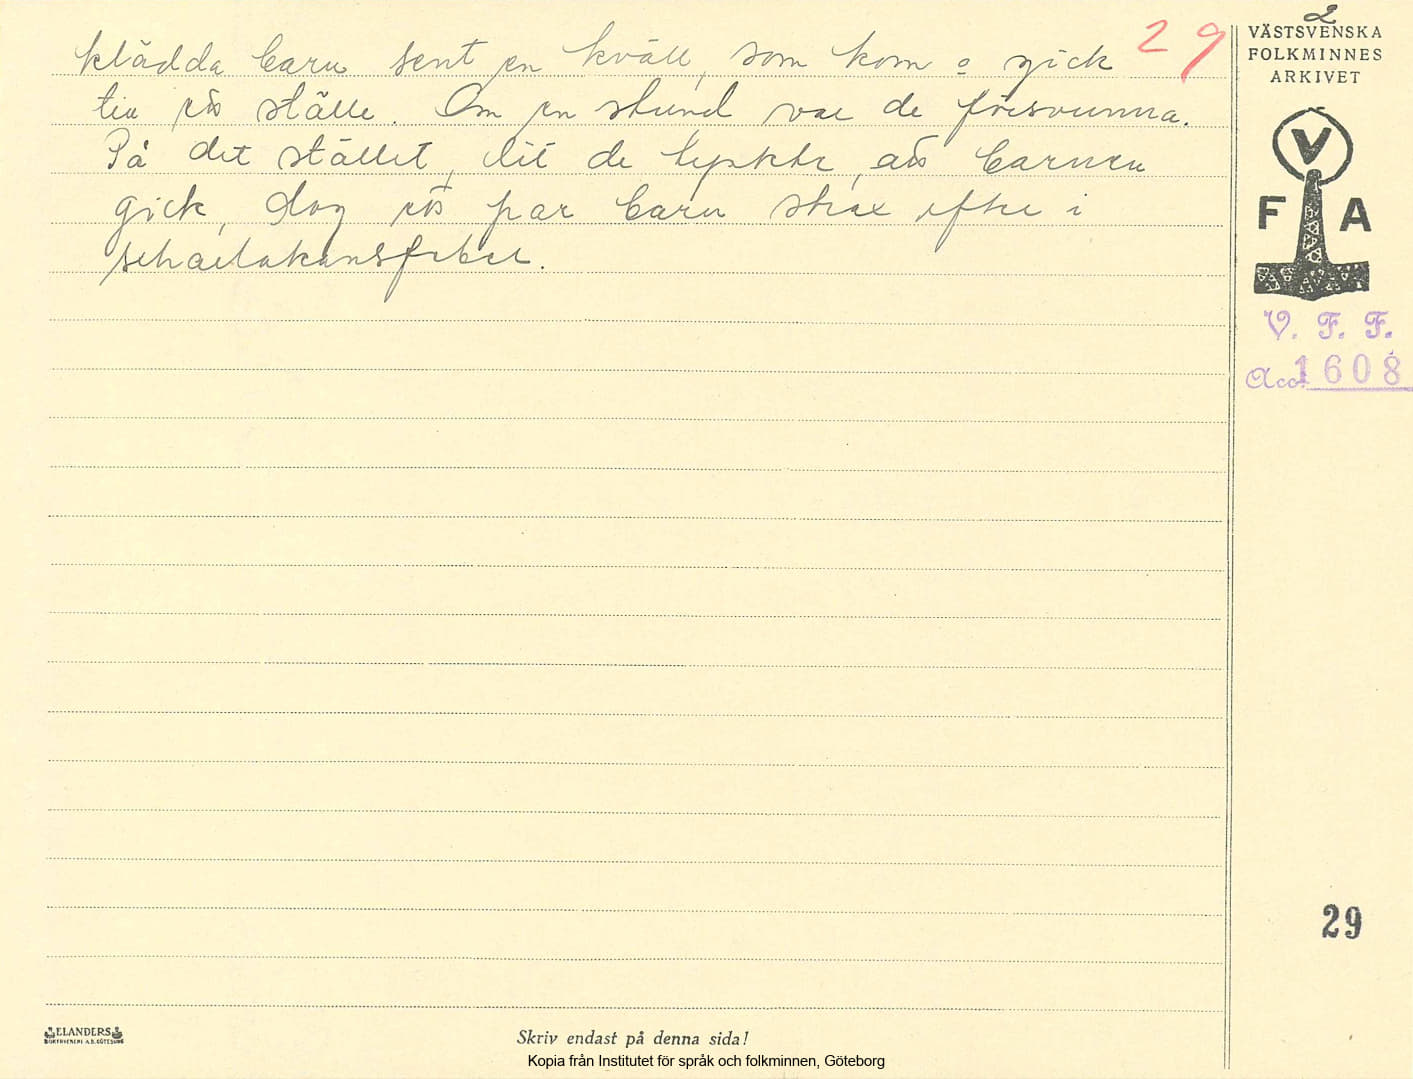 2
29
klädda barn sent en kväll, som kom o gick
till ett ställe. Om en stund var de försvunna.
På det stället, dit de tyckte, att barnen
gick, dog ett par barn strax efter i
scharlakansfeber.
VÄSTSVENSKA
FOLKMINNES
ARKIVET
V
F A
V. F. F.
Acc. 1608
29
ELANDERS
BOKTRYCKERI A.B. GÖTEBORG
Skriv endast på denna sida!
Kopia från Institutet för språk och folkminnen, Göteborg